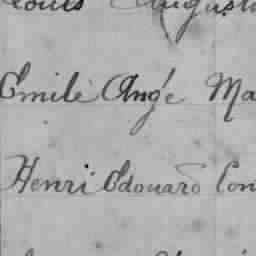 Louis Augusti
Emile Ange Ma
Henri Edouard Con